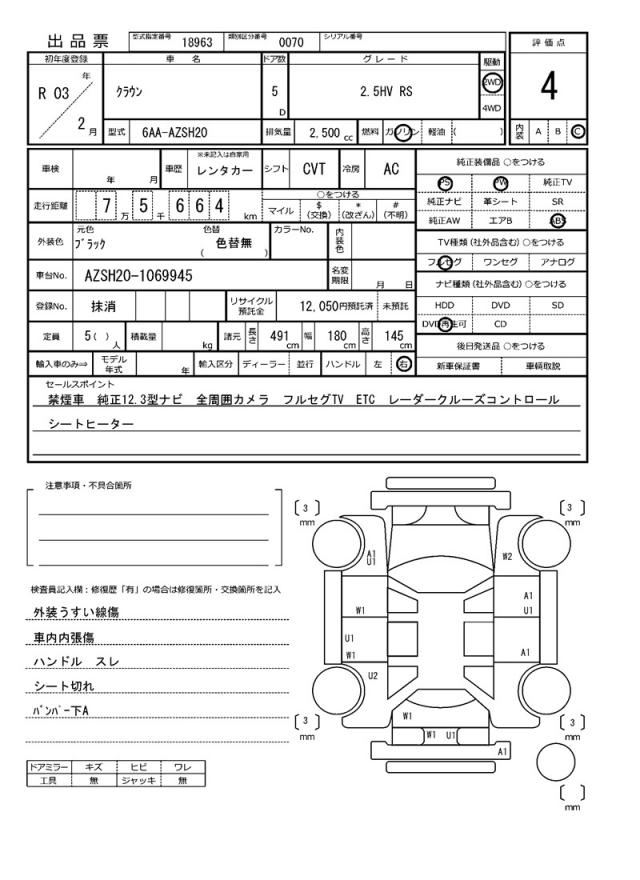 出品票
型式指定番号 18963 類別区分番号 0070 シリアル番号
評価点
4
内装 A B C
初年度登録 車名 ドア数 グレード 駆動
R 03 年 2 月
クラウン 5 D 2.5HV RS 2WD 4WD
型式 6AA-AZSH20 排気量 2,500 cc 燃料 ガソリン 軽油 ( )
車検 年 月 車歴 ※未記入は自家用 レンタカー シフト CVT 冷房 AC
走行距離 7 万 5 千 6 6 4 km ○をつける
マイル $(交換) *(改ざん) #(不明)
外装色 元色 ブラック 色替 ( 色替無 ) カラーNo. 内装色
車台No. AZSH20-1069945 名変期限 月 日
登録No. 抹消 リサイクル預託金 12,050円預託済 未預託
定員 5( ) 人 積載量 kg 諸元 長さ 491 cm 幅 180 cm 高さ 145 cm
輸入車のみ⇒ モデル年式 年 輸入区分 ディーラー 並行 ハンドル 左 右
純正装備品 ○をつける
PS PW 純正TV
純正ナビ 革シート SR
純正AW エアB ABS
TV種類 (社外品含む) ○をつける
フルセグ ワンセグ アナログ
ナビ種類 (社外品含む) ○をつける
HDD DVD SD
DVD再生可 CD
後日発送品 ○をつける
新車保証書 車輌取説
セールスポイント
禁煙車 純正12.3型ナビ 全周囲カメラ フルセグTV ETC レーダークルーズコントロール
シートヒーター
注意事項・不具合箇所
検査員記入欄：修復歴「有」の場合は修復箇所・交換箇所を記入
外装うすい線傷
車内内張傷
ハンドル スレ
シート切れ
バンパー下A
ドアミラー キズ ヒビ ワレ
工具 無 ジャッキ 無
3 mm
3 mm
A1
U1
W2
W1
A1
U1
U1
W1
A1
U2
W1
3 mm
3 mm
W1 U1
A1
mm